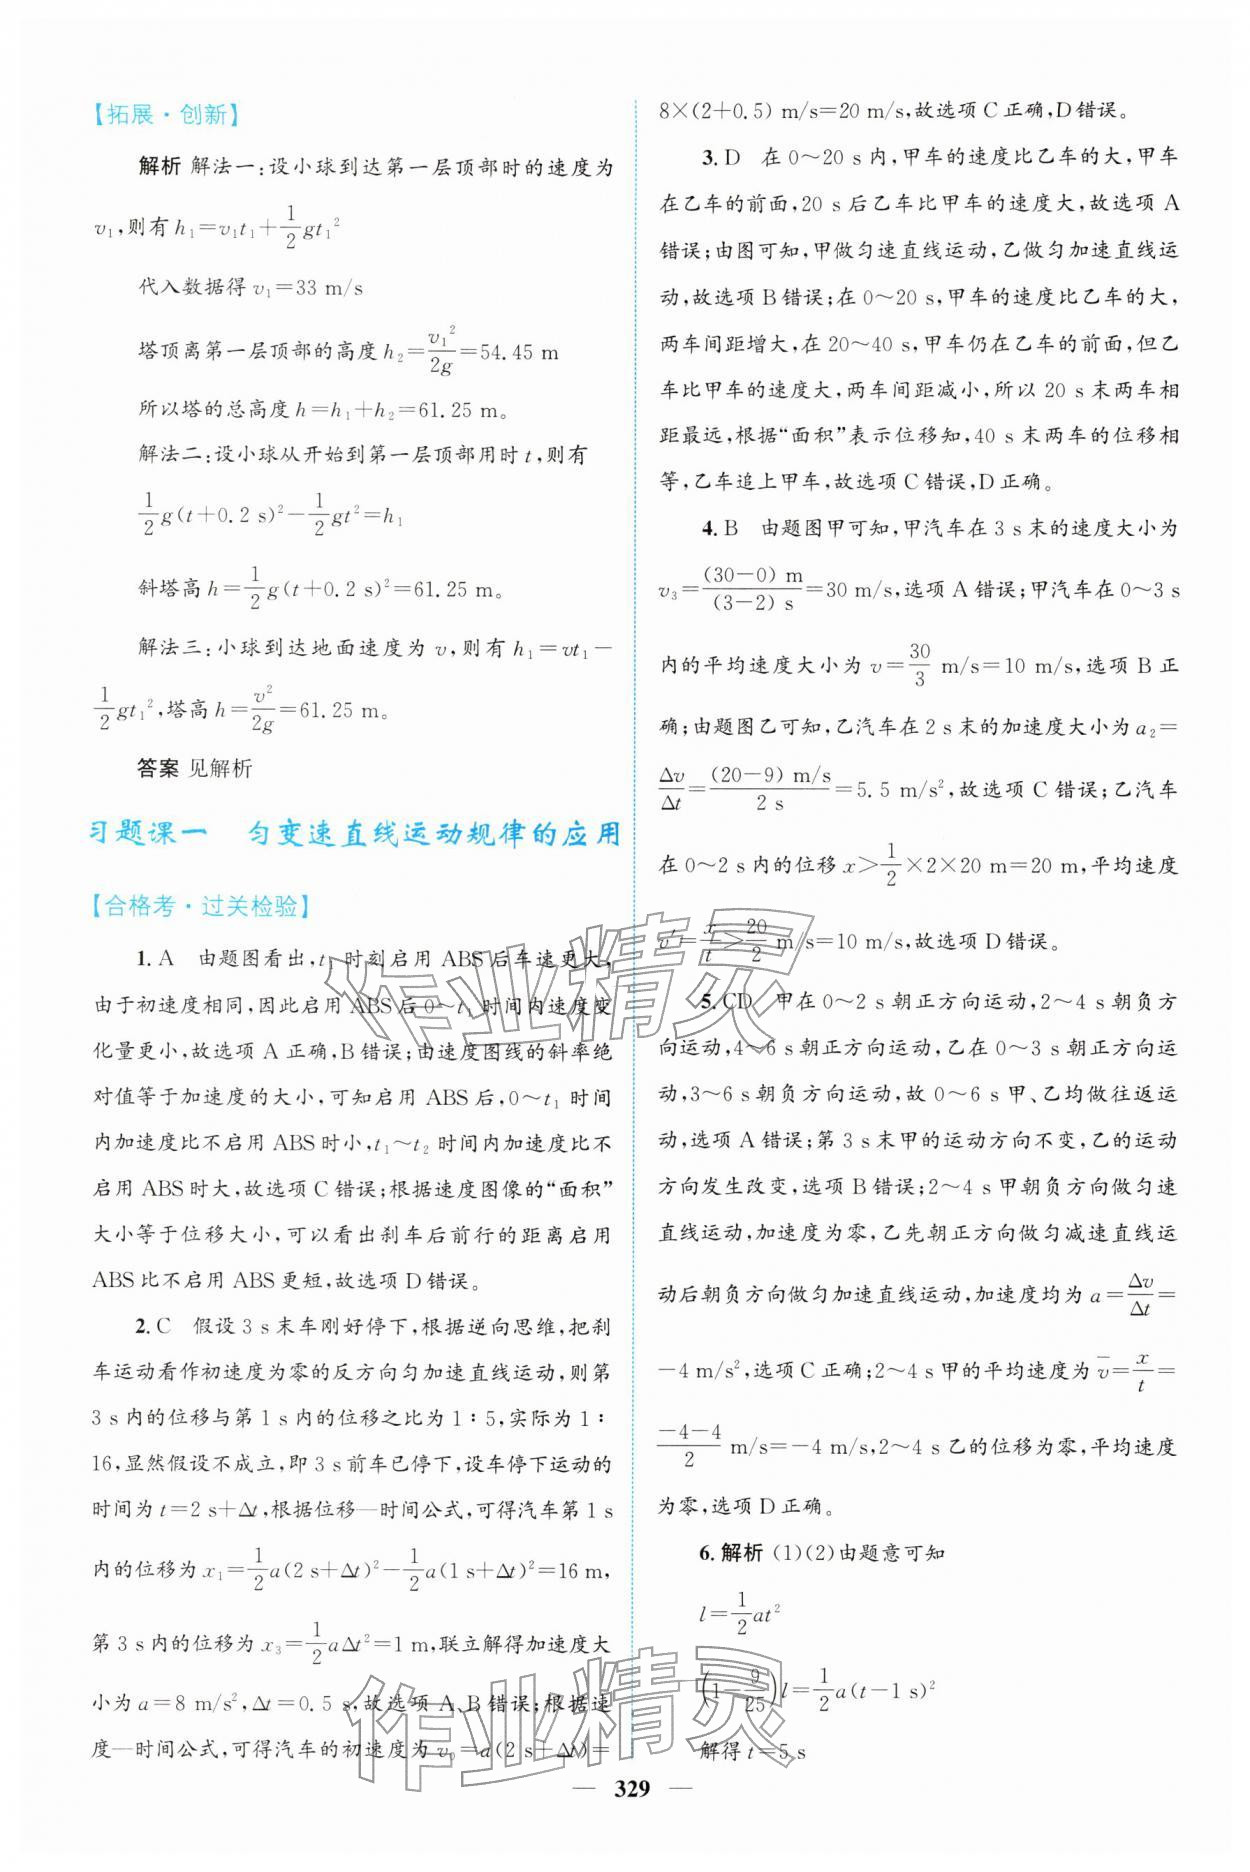 【拓展·创新】
解析 解法一:设小球到达第一层顶部时的速度为
v₁,则有 h₁=v₁t₁+\frac{1}{2}gt₁²
代入数据得 v₁=33 m/s
塔顶离第一层顶部的高度 h₂=\frac{v₁²}{2g}=54.45 m
所以塔的总高度 h=h₁+h₂=61.25 m。
解法二:设小球从开始到第一层顶部用时 t,则有
\frac{1}{2}g(t+0.2 s)²-\frac{1}{2}gt²=h₁
斜塔高 h=\frac{1}{2}g(t+0.2 s)²=61.25 m。
解法三:小球到达地面速度为 v,则有 h₁=vt₁-
\frac{1}{2}gt₁²,塔高 h=\frac{v²}{2g}=61.25 m。
答案 见解析
习题课一 匀变速直线运动规律的应用
【合格考·过关检验】
1.A 由题图看出,t₁ 时刻启用 ABS后车速更大,
由于初速度相同,因此启用 ABS 后 0～t₁ 时间内速度变
化量更小,故选项 A 正确,B错误;由速度图线的斜率绝
对值等于加速度的大小,可知启用 ABS 后,0～t₁ 时间
内加速度比不启用 ABS时小,t₁～t₂ 时间内加速度比不
启用 ABS时大,故选项C错误;根据速度图像的“面积”
大小等于位移大小,可以看出刹车后前行的距离启用
ABS比不启用 ABS更短,故选项 D错误。
2.C 假设 3 s末车刚好停下,根据逆向思维,把刹
车运动看作初速度为零的反方向匀加速直线运动,则第
3 s内的位移与第 1 s内的位移之比为 1∶5,实际为 1∶
16,显然假设不成立,即 3 s前车已停下,设车停下运动的
时间为 t=2 s+Δt,根据位移—时间公式,可得汽车第 1 s
内的位移为 x₁=\frac{1}{2}a(2 s+Δt)²-\frac{1}{2}a(1 s+Δt)²=16 m,
第 3 s内的位移为 x₃=\frac{1}{2}aΔt²=1 m,联立解得加速度大
小为 a=8 m/s²,Δt=0.5 s,故选项 A、B错误;根据速
度—时间公式,可得汽车的初速度为 v₀=a(2 s+Δt)=
8×(2+0.5) m/s=20 m/s,故选项 C正确,D错误。
3.D 在 0～20 s内,甲车的速度比乙车的大,甲车
在乙车的前面,20 s后乙车比甲车的速度大,故选项 A
错误;由图可知,甲做匀速直线运动,乙做匀加速直线运
动,故选项B错误;在 0～20 s,甲车的速度比乙车的大,
两车间距增大,在 20～40 s,甲车仍在乙车的前面,但乙
车比甲车的速度大,两车间距减小,所以 20 s末两车相
距最远,根据“面积”表示位移知,40 s末两车的位移相
等,乙车追上甲车,故选项C错误,D正确。
4.B 由题图甲可知,甲汽车在 3 s末的速度大小为
v₃=\frac{(30-0) m}{(3-2) s}=30 m/s,选项 A 错误;甲汽车在 0～3 s
内的平均速度大小为 v=\frac{30}{3} m/s=10 m/s,选项 B 正
确;由题图乙可知,乙汽车在 2 s末的加速度大小为 a₂=
\frac{Δv}{Δt}=\frac{(20-9) m/s}{2 s}=5.5 m/s²,故选项 C错误;乙汽车
在 0～2 s内的位移 x>\frac{1}{2}×2×20 m=20 m,平均速度
v′=\frac{x}{t}>\frac{20}{2} m/s=10 m/s,故选项 D错误。
5.CD 甲在 0～2 s朝正方向运动,2～4 s朝负方
向运动,4～6 s朝正方向运动,乙在 0～3 s朝正方向运
动,3～6 s朝负方向运动,故 0～6 s甲、乙均做往返运
动,选项 A错误;第 3 s末甲的运动方向不变,乙的运动
方向发生改变,选项 B错误;2～4 s甲朝负方向做匀速
直线运动,加速度为零,乙先朝正方向做匀减速直线运
动后朝负方向做匀加速直线运动,加速度均为 a=\frac{Δv}{Δt}=
-4 m/s²,选项 C正确;2～4 s甲的平均速度为 \overline{v}=\frac{x}{t}=
\frac{-4-4}{2} m/s=-4 m/s,2～4 s乙的位移为零,平均速度
为零,选项 D正确。
6.解析 (1)(2)由题意可知
l=\frac{1}{2}at²
(1-\frac{9}{25})l=\frac{1}{2}a(t-1 s)²
解得 t=5 s
— 329 —
作业精灵
作业精灵